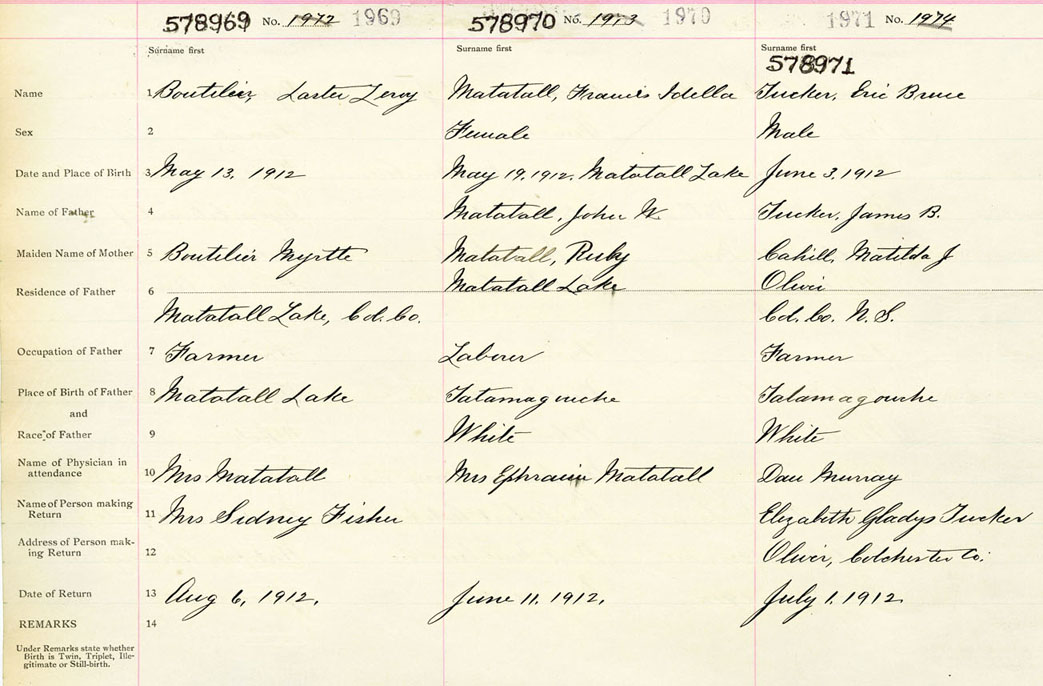 578969 No. 1972 1969 578970 No. 1973 1970 1971 No. 1974
Surname first Surname first Surname first
578971
Name 1 Boutilier, Laster Leroy Matatall, Francis Idella Tucker, Eric Bruce
Sex 2 Female Male
Date and Place of Birth 3 May 13, 1912 May 19, 1912. Matatall Lake June 3, 1912
Name of Father 4 Matatall, John W. Tucker, James B.
Maiden Name of Mother 5 Boutilier Myrtle Matatall, Ruby Cahill, Matilda J
Residence of Father 6 Matatall Lake Oliver
Matatall Lake, Col. Co. Col. Co. N.S.
Occupation of Father 7 Farmer Laborer Farmer
Place of Birth of Father 8 Matatall Lake Tatamagouche Tatamagouche
and
Race of Father 9 White White
Name of Physician in
attendance 10 Mrs Matatall Mrs Ephraim Matatall Dan Murray
Name of Person making
Return 11 Mrs Sidney Fisher Elizabeth Gladys Tucker
Address of Person mak-
ing Return 12 Oliver, Colchester Co.
Date of Return 13 Aug 6, 1912. June 11, 1912. July 1, 1912
REMARKS 14
Under Remarks state whether
Birth is Twin, Triplet, Ille-
gitimate or Still-birth.